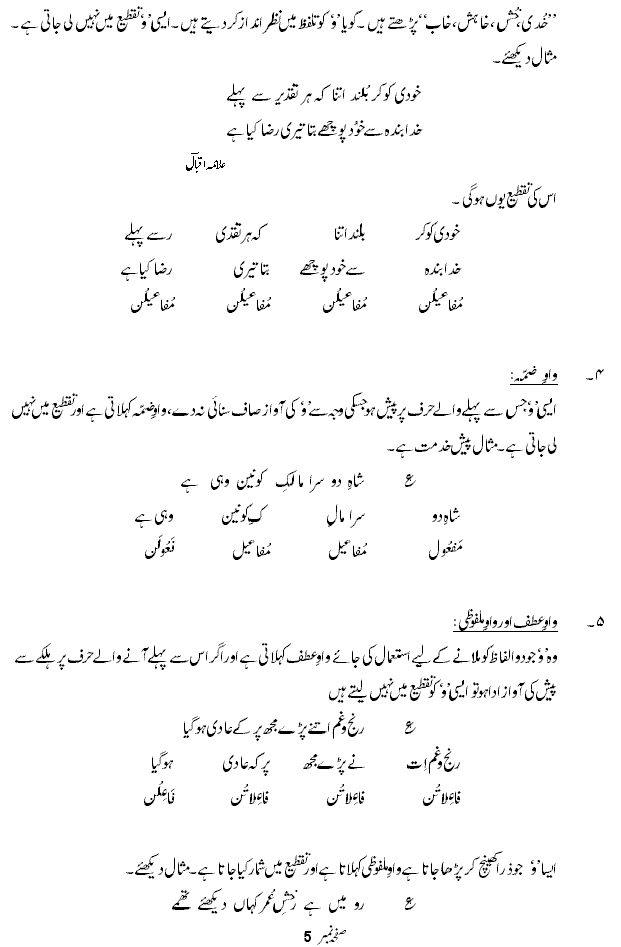 ’’خُدی، خُش، خاہش، خاب‘‘ پڑھتے ہیں۔ گویا ’و‘ کو تلفظ میں نظر انداز کر دیتے ہیں۔ ایسی ’و‘ تقطیع میں نہیں لی جاتی ہے۔
مثال دیکھئے۔
خودی کو کر بُلند اتنا کہ ہر تقدیر سے پہلے
خدا بندہ سے خُود پوچھے بتا تیری رضا کیا ہے
علامہ اقبالؔ
اس کی تقطیع یوں ہو گی۔
خودی کو کر بلند اتنا کہ ہر تقدی ر سے پہلے
خدا بندہ سے خود پوچھے بتا تیری رضا کیا ہے
مُفاعیلُن مُفاعیلُن مُفاعیلُن مُفاعیلُن
۴۔ واوِ ضمّہ:
ایسی ’و‘ جس سے پہلے والے حرف پر پیش ہو جسکی وجہ سے ’و‘ کی آواز صاف سنائی نہ دے، واوِ ضمّہ کہلاتی ہے اور تقطیع میں نہیں
لی جاتی ہے۔ مثال پیشِ خدمت ہے۔
ع شاہِ دو سرا مالکِ کونین وہی ہے
شاہِ دو سرا مالِ کِ کونین وہی ہے
مَفعُول مُفاعیل مُفاعیل فَعُولَن
۵۔ واوِ عطف اور واوِ ملفوظی:
وہ ’و‘ جو دو الفاظ کو ملانے کے لیے استعمال کی جائے واوِ عطف کہلاتی ہے اور اگر اس سے پہلے آنے والے حرف پر ہلکے سے
پیش کی آواز ادا ہو تو ایسی ’و‘ کو تقطیع میں نہیں لیتے ہیں
ع رنج و غم اتنے پڑے مجھ پر کے عادی ہو گیا
رنج و غم اِت نے پڑے مجھ پر کہ عادی ہو گیا
فاعِلاتُن فاعِلاتُن فاعِلاتُن فَاعِلُن
ایسا ’و‘ جو ذرا کھینچ کر پڑھا جاتا ہے واوِ ملفوظی کہلاتا ہے اور تقطیع میں شمار کیا جاتا ہے۔ مثال دیکھئے۔
ع رو میں ہے رخشِ عُمر کہاں دیکھئے تھمے
صفحہ نمبر 5